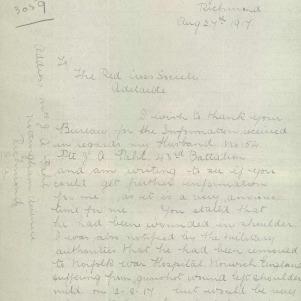 3059
Richmond
Aug 27th 1917
To
The Red Cross Society
Adelaide
I wish to thank your
Bureau for the Information received
in regards my Husband No 154
Pte J. A. 43rd Battalion
and am writing to see if you
could get further information
for me, as it is a very anxious
time for me. You stated that
he had been wounded in shoulder
I was also notified by the military
authorities that he had been removed
to Norfolk War Hospital Norwich England
suffering from gunshot wound left shoulder
mild on 2-8-17 but would be very
Address Mrs J. A.
Avenue
Richmond